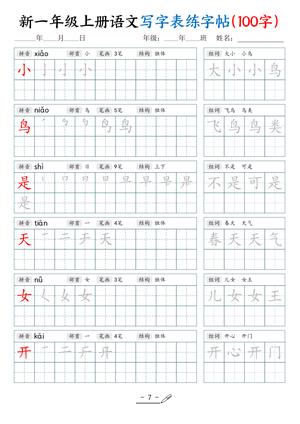 新一年级上册语文写字表练字帖(100字)
年 月 日 年级: 年 班 姓名:
拼音 xiǎo 部首 小 笔画 3笔 结构 独体 组词 大小 小鸟
小 大小小鸟
拼音 niǎo 部首 鸟 笔画 5笔 结构 独体 组词 飞鸟 鸟类
鸟 飞鸟鸟类
拼音 shì 部首 日 笔画 9笔 结构 上下 组词 不是 可是
是 不是可是
是
拼音 tiān 部首 一 笔画 4笔 结构 独体 组词 春天 天气
天 春天天气
拼音 nǚ 部首 女 笔画 3笔 结构 独体 组词 儿女 女王
女 儿女女王
拼音 kāi 部首 一 笔画 4笔 结构 独体 组词 开心 开门
开 开心开门
- 7 -